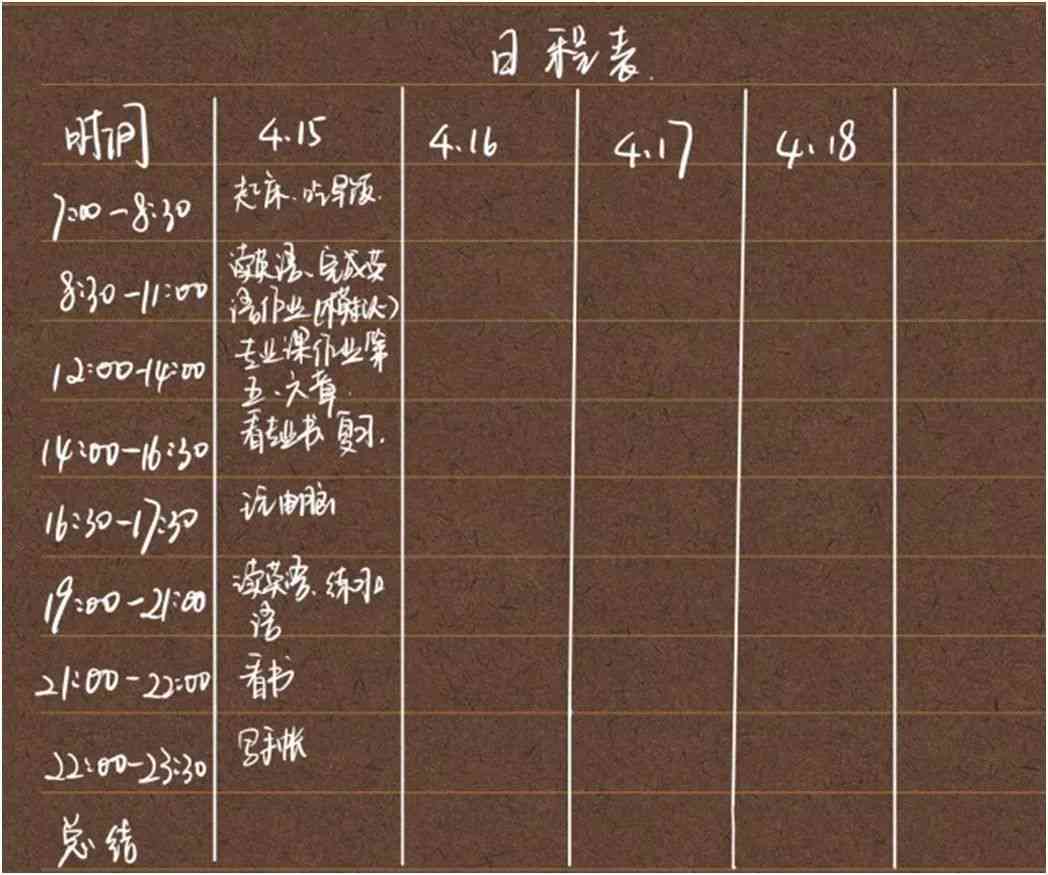 日程表
时间 4.15 4.16 4.17 4.18
7:00-8:30 起床、吃早饭.
8:30-11:00 读英语、完成英
语作业(模拟公)
12:00-14:00 专业课作业第
五、六章.
14:00-16:30 看专业书 复习.
16:30-17:30 玩电脑
19:00-21:00 读英语、练习口
语
21:00-22:00 看书
22:00-23:30 写手帐
总结